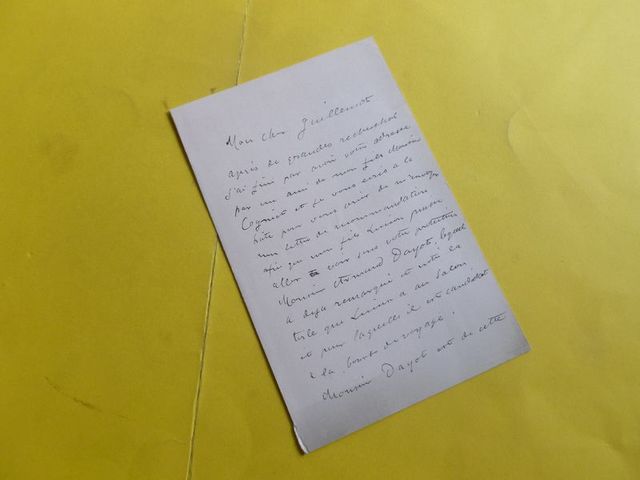 Mon cher Guillemot
après de grandes recherches
j'ai fini par avoir votre adresse
par un ami de mon fils
Cogniet et je vous écris à la
hâte pour vous prier de m'envoyer
une lettre de recommandation
afin que mon fils Lucien puisse
aller voir sous votre protection
Monsieur Armand Dayot, lequel
a déjà remarqué
toile que Lucien a au Salon
et pour laquelle il est candidat
à la bourse de voyage.
Monsieur Dayot est de cette